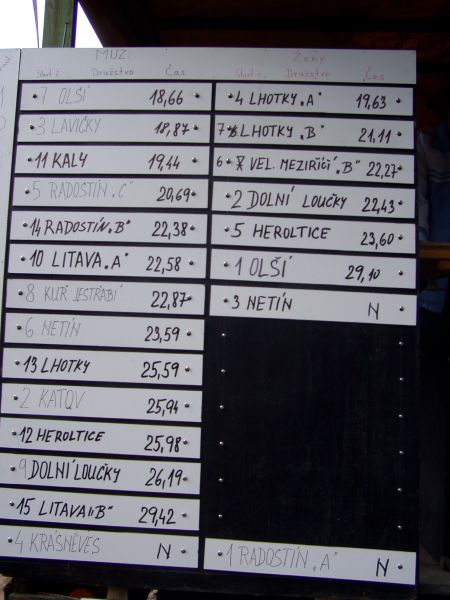 MUŽI
Start č. Družstvo Čas
7 OLŠÍ 18,66
3 LAVIČKY 18,87
11 KALY 19,44
5 RADOSTÍN „C" 20,69
14 RADOSTÍN „B" 22,38
10 LITAVA „A" 22,58
8 KUŘ. JESTŘABÍ 22,87
6 NETÍN 23,59
13 LHOTKY 25,59
2 KATOV 25,94
12 HEROLTICE 25,98
9 DOLNÍ LOUČKY 26,19
15 LITAVA „B" 29,42
4 KRASNĚVES N
Ženy
Start č. Družstvo Čas
4 LHOTKY „A" 19,63
7 LHOTKY „B" 21,11
6 VEL. MEZIŘÍČÍ "B" 22,27
2 DOLNÍ LOUČKY 22,43
5 HEROLTICE 23,60
1 OLŠÍ 29,10
3 NETÍN N
1 RADOSTÍN „A" N